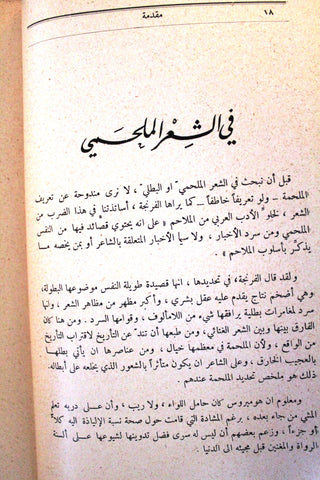 ١٨
مقدمة
في الشِعْر الملحَمِي
قبل أن نبحث في الشعر الملحميّ او البطليّ ، لا نرى مندوحة عن تعريف
الملحمة – ولو تعريفاً خاطفاً – كما يراها الفرنجة ، أساتذتنا في هذا الضرب من
الشعر ، لخلو الأدب العربي من الملاحم « على انه يحتوي قصائد فيها من النفس
الملحمي ومن سرد الأخبار ، ولا سيما الأخبار المتعلقة بالشاعر أو بمن يخصه ما
يذكّر بأسلوب الملاحم » .
ولقد قال الفرنجة ، في تحديدها ، انها قصيدة طويلة النفس موضوعها البطولة،
وهي أضخم نتاج يقدم عليه عقل بشري ، وأكبر مظهر من مظاهر الشعر ، وانها
سرد لمغامرات بطلية يرافقها شيء من اللامألوف ، وقوامها السرد . ومن هنا كان
الفارق بينها وبين الشعر الغنائي، ومن طبعها أن تندّ عن التأريخ لاقتراب التأريخ
من الواقع ، ولأن الملحمة في معظمها خيال ، ومن عناصرها ان يأتي بطلها
بالعجيب الخارق ، وعلى الشاعر ان يكون متأثراً بالشعور الذي يخلعه على أبطاله.
ذلك هو ملخص تحديد الملحمة عندهم .
ومعلوم ان هوميروس كان حامل اللواء ، ولا ريب ، وأن على دربه تعلم
المشي من جاء بعده ، برغم المشادة التي قامت حول صحة نسبة الإلياذة اليه كلاً
أو جزءاً ، وزعم بعضهم أن ليس له سرى فضل تدوينها لشيوعها على ألسنة
الرواة والمغنين قبل مجيئه الى الدنيا .